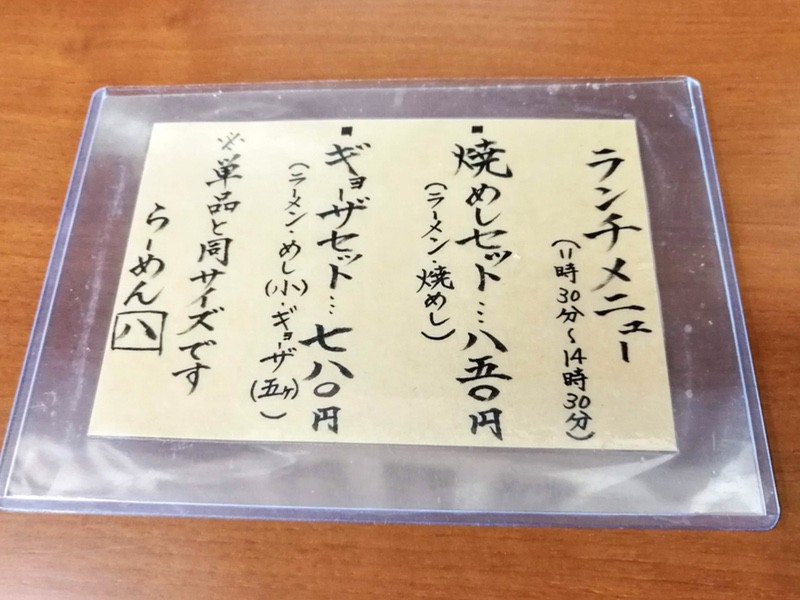 ランチメニュー
(11時30分～14時30分)
■焼めしセット…八五〇円
(ラーメン・焼めし)
■ギョーザセット…七八〇円
(ラーメン・めし(小)・ギョーザ(五ヶ))
※単品と同サイズです
らーめん八